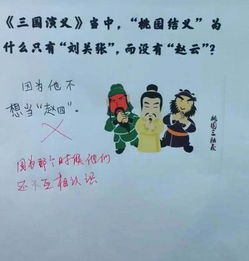 《三国演义》当中，“桃园结义”为
什么只有“刘关张”，而没有“赵云”？
因为他不
想当“赵四”。
因为那个时候他们
还不互相认识
桃园三结义